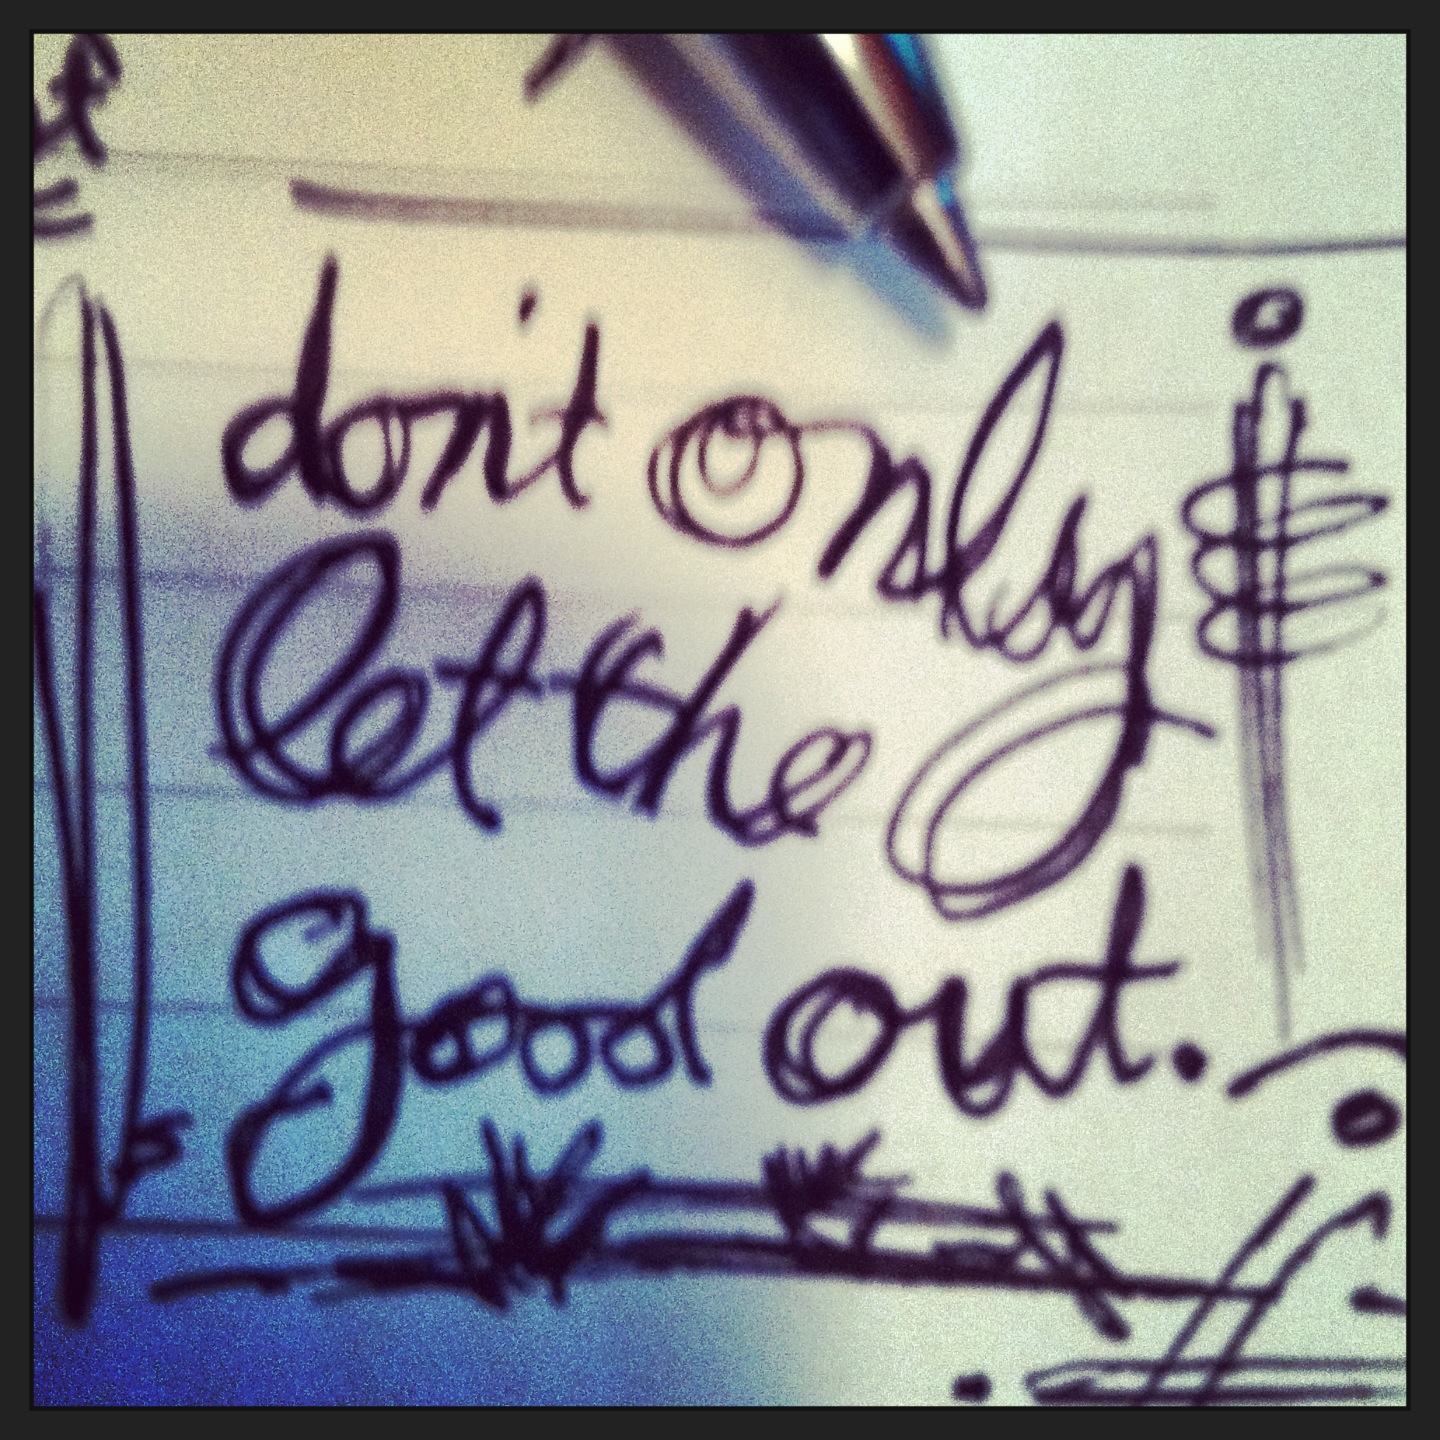 don't only
let the
good out.